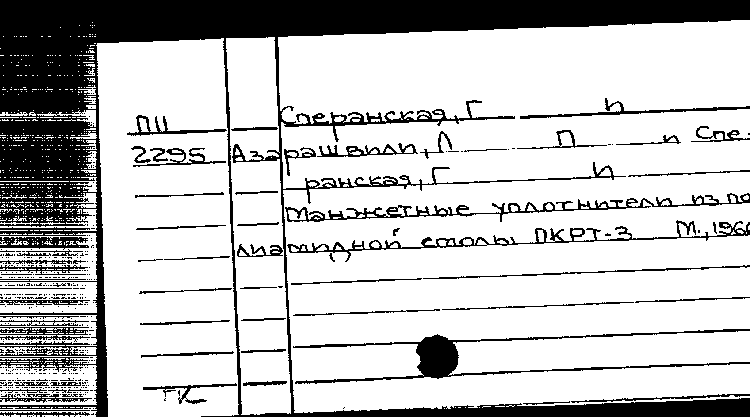 П11 Сперанская, Г И
2295 Азарашвили, Л П и Спе-
ранская, Г И
Манжетные уплотнители из по-
лиамидной смолы ПКРТ-3 М., 196
ГК